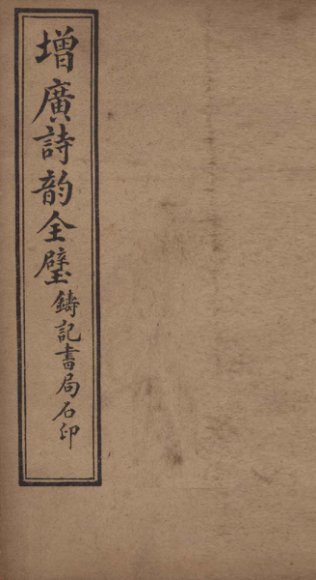 增廣詩韵全璧鑄記書局石印